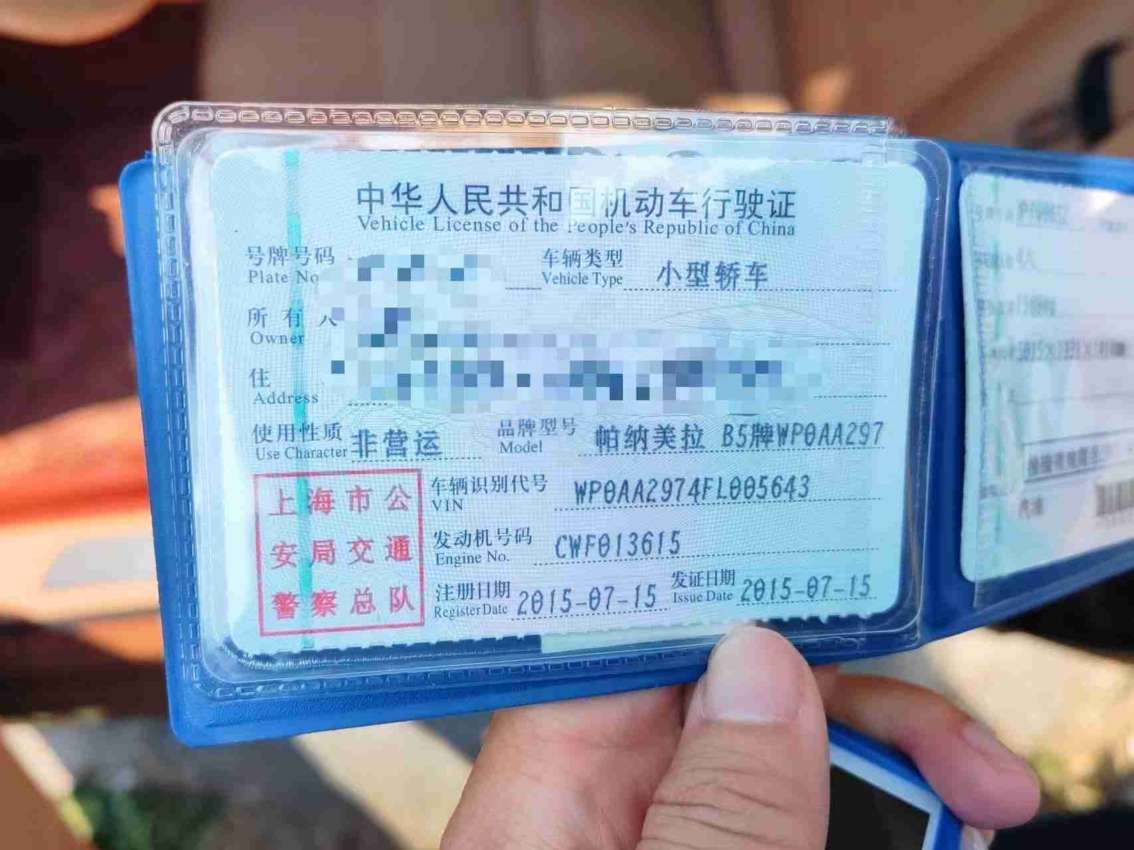 中华人民共和国机动车行驶证
Vehicle License of the People's Republic of China
号牌号码
Plate No
车辆类型 小型轿车
Vehicle Type
所有人
Owner
住
Address
使用性质 非营运
Use Character
品牌型号 帕纳美拉 B5牌WP0AA297
Model
上海市公
安局交通
警察总队
车辆识别代号 WP0AA2974FL005643
VIN
发动机号码 CWF013615
Engine No.
注册日期 2015-07-15
Register Date
发证日期 2015-07-15
Issue Date